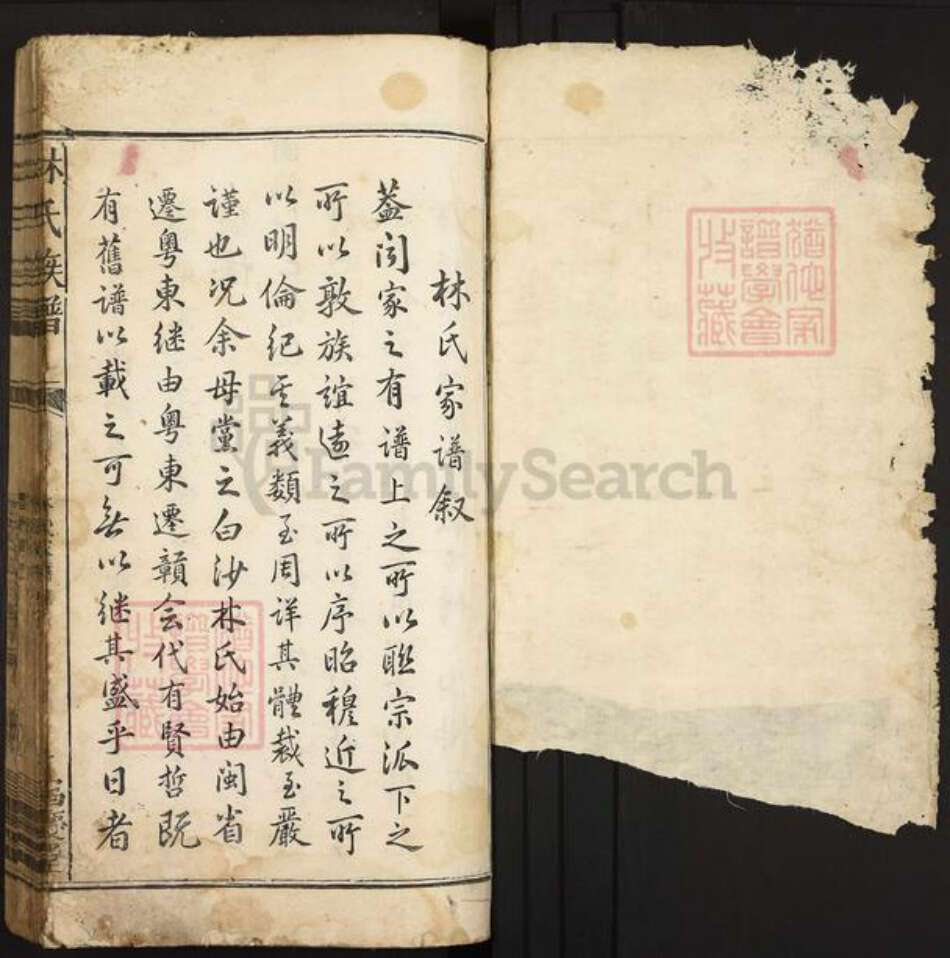 林氏家谱叙
葢闻家之有谱上之所以聯宗派下之
所以敦族誼遠之所以序昭穆近之所
以明倫纪其義類至周详其體裁至嚴
谨也况余母黨之白沙林氏始由闽省
遷粤東继由粤東遷贛会代有賢哲既
有舊谱以載之可無以继其盛乎日者
林氏族譜
FamilySearch
譜學會
收藏